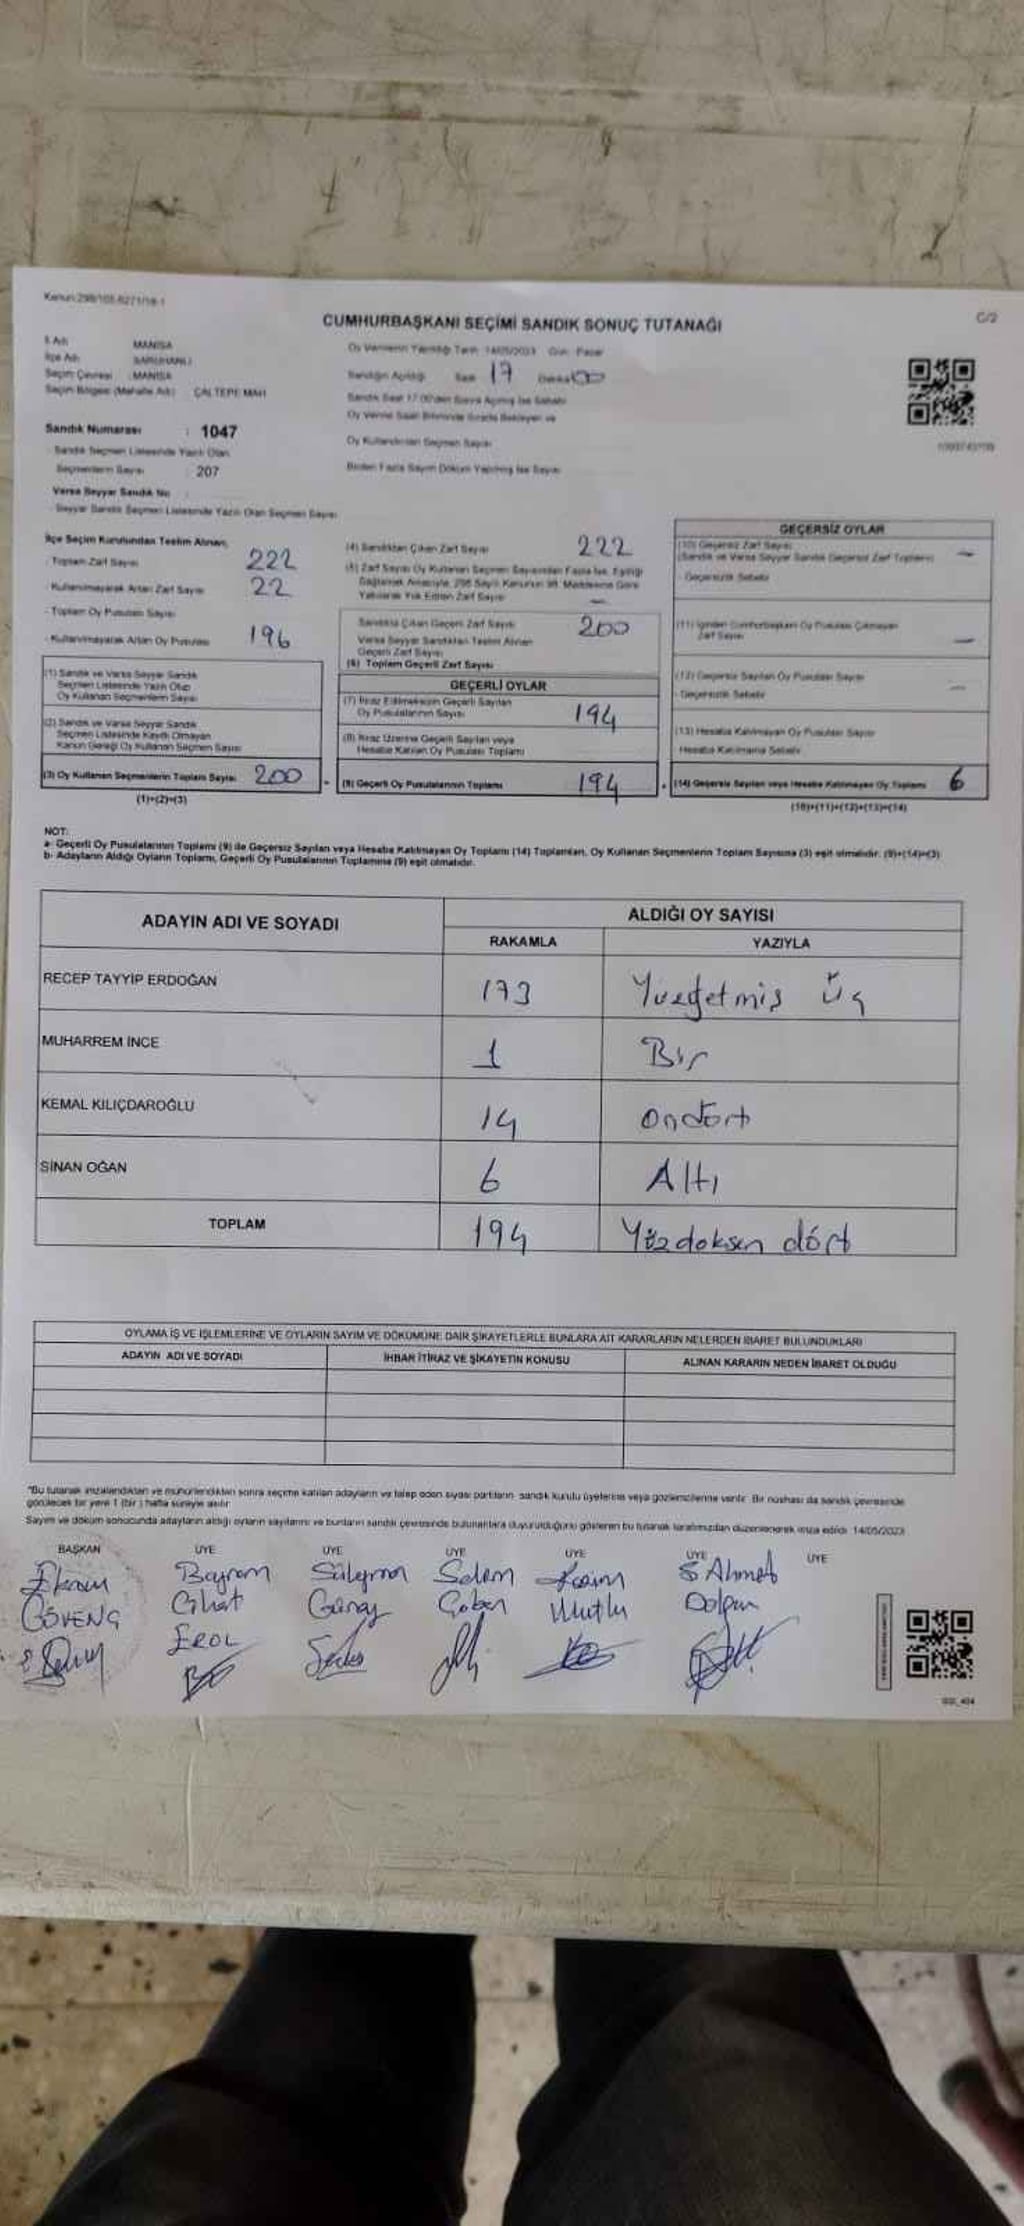 Kanun:298/105-6271/18-1
C/2
CUMHURBAŞKANI SEÇİMİ SANDIK SONUÇ TUTANAĞI
İl Adı MANİSA
İlçe Adı SARUHANLI
Seçim Çevresi : MANİSA
Seçim Bölgesi (Mahalle Adı) ÇALTEPE MAH
Sandık Numarası : 1047
Sandık Seçmen Listesinde Yazılı Olan
Seçmenlerin Sayısı : 207
Varsa Seyyar Sandık No
Seyyar Sandık Seçmen Listesinde Yazılı Olan Seçmen Sayısı
Oy Vermenin Yapıldığı Tarih 14/05/2023 Gün Pazar
Sandığın Açıldığı Saat 17 Dakika 00
Sandık Saat 17.00'den Sonra Açılmış İse Sebebi
Oy Verme Saati Bitiminde Sırada Bekleyen ve
Oy Kullandırılan Seçmen Sayısı
Birden Fazla Sayım Döküm Yapılmış İse Sayısı
İlçe Seçim Kurulundan Teslim Alınan;
- Toplam Zarf Sayısı 222
- Kullanılmayarak Artan Zarf Sayısı 22
- Toplam Oy Pusulası Sayısı
- Kullanılmayarak Artan Oy Pusulası 196
(1) Sandık ve Varsa Seyyar Sandık
Seçmen Listesinde Yazılı Olup
Oy Kullanan Seçmenlerin Sayısı
(2) Sandık ve Varsa Seyyar Sandık
Seçmen Listesinde Kayıtlı Olmayan
Kanun Gereği Oy Kullanan Seçmen Sayısı
(3) Oy Kullanan Seçmenlerin Toplam Sayısı 200
(1)+(2)=(3)
(4) Sandıktan Çıkan Zarf Sayısı 222
(5) Zarf Sayısı Oy Kullanan Seçmen Sayısından Fazla İse, Eşitliği
Sağlamak Amacıyla, 298 Sayılı Kanunun 98. Maddesine Göre
Yakılarak Yok Edilen Zarf Sayısı —
Sandıkta Çıkan Geçerli Zarf Sayısı 200
Varsa Seyyar Sandıktan Teslim Alınan
Geçerli Zarf Sayısı
(6) Toplam Geçerli Zarf Sayısı
GEÇERLİ OYLAR
(7) İtiraz Edilmeksizin Geçerli Sayılan
Oy Pusulalarının Sayısı 194
(8) İtiraz Üzerine Geçerli Sayılan veya
Hesaba Katılan Oy Pusulası Toplamı
(9) Geçerli Oy Pusulalarının Toplamı 194
GEÇERSİZ OYLAR
(10) Geçersiz Zarf Sayısı —
(Sandık ve Varsa Seyyar Sandık Geçersiz Zarf Toplamı)
- Geçersizlik Sebebi
(11) İçinden Cumhurbaşkanı Oy Pusulası Çıkmayan
Zarf Sayısı —
(12) Geçersiz Sayılan Oy Pusulası Sayısı —
- Geçersizlik Sebebi
(13) Hesaba Katılmayan Oy Pusulası Sayısı
Hesaba Katılmama Sebebi
(14) Geçersiz Sayılan veya Hesaba Katılmayan Oy Toplamı 6
(10)+(11)+(12)+(13)=(14)
NOT:
a- Geçerli Oy Pusulalarının Toplamı (9) ile Geçersiz Sayılan veya Hesaba Katılmayan Oy Toplamı (14) Toplamları, Oy Kullanan Seçmenlerin Toplam Sayısına (3) eşit olmalıdır. (9)+(14)=(3)
b- Adayların Aldığı Oyların Toplamı, Geçerli Oy Pusulalarının Toplamına (9) eşit olmalıdır.
ADAYIN ADI VE SOYADI ALDIĞI OY SAYISI
RAKAMLA YAZIYLA
RECEP TAYYİP ERDOĞAN 173 Yüzyetmiş Üç
MUHARREM İNCE 1 Bir
KEMAL KILIÇDAROĞLU 14 ondört
SİNAN OĞAN 6 Altı
TOPLAM 194 Yüzdoksan dört
OYLAMA İŞ VE İŞLEMLERİNE VE OYLARIN SAYIM VE DÖKÜMÜNE DAİR ŞİKAYETLERLE BUNLARA AİT KARARLARIN NELERDEN İBARET BULUNDUKLARI
ADAYIN ADI VE SOYADI İHBAR İTİRAZ VE ŞİKAYETİN KONUSU ALINAN KARARIN NEDEN İBARET OLDUĞU
*Bu tutanak imzalandıktan ve mühürlendikten sonra seçime katılan adayların ve talep eden siyasi partilerin sandık kurulu üyelerine veya gözlemcilerine verilir. Bir nüshası da sandık çevresinde
görülecek bir yere 1 (bir) hafta süreyle asılır.
Sayım ve döküm sonucunda adayların aldığı oyların sayılarını ve bunların sandık çevresinde bulunanlara duyurulduğunu gösteren bu tutanak tarafımızdan düzenlenerek imza edildi. 14/05/2023
BAŞKAN ÜYE ÜYE ÜYE ÜYE ÜYE ÜYE
Ekrem Bayram Süleyman Selam Kasım Ş Ahmet
GÜVENÇ Cihat Günay Çoban Mutlu Dolgun
EROL